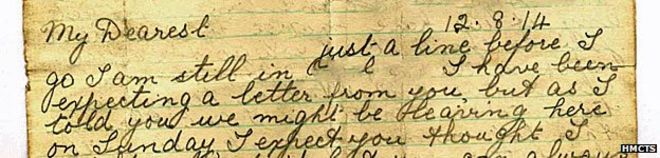 12.8.14
My Dearest
just a line before I
go I am still in I have been
expecting a letter from you but as I
told you we might be leaving here
on Sunday I expect you thought I
HMCTS